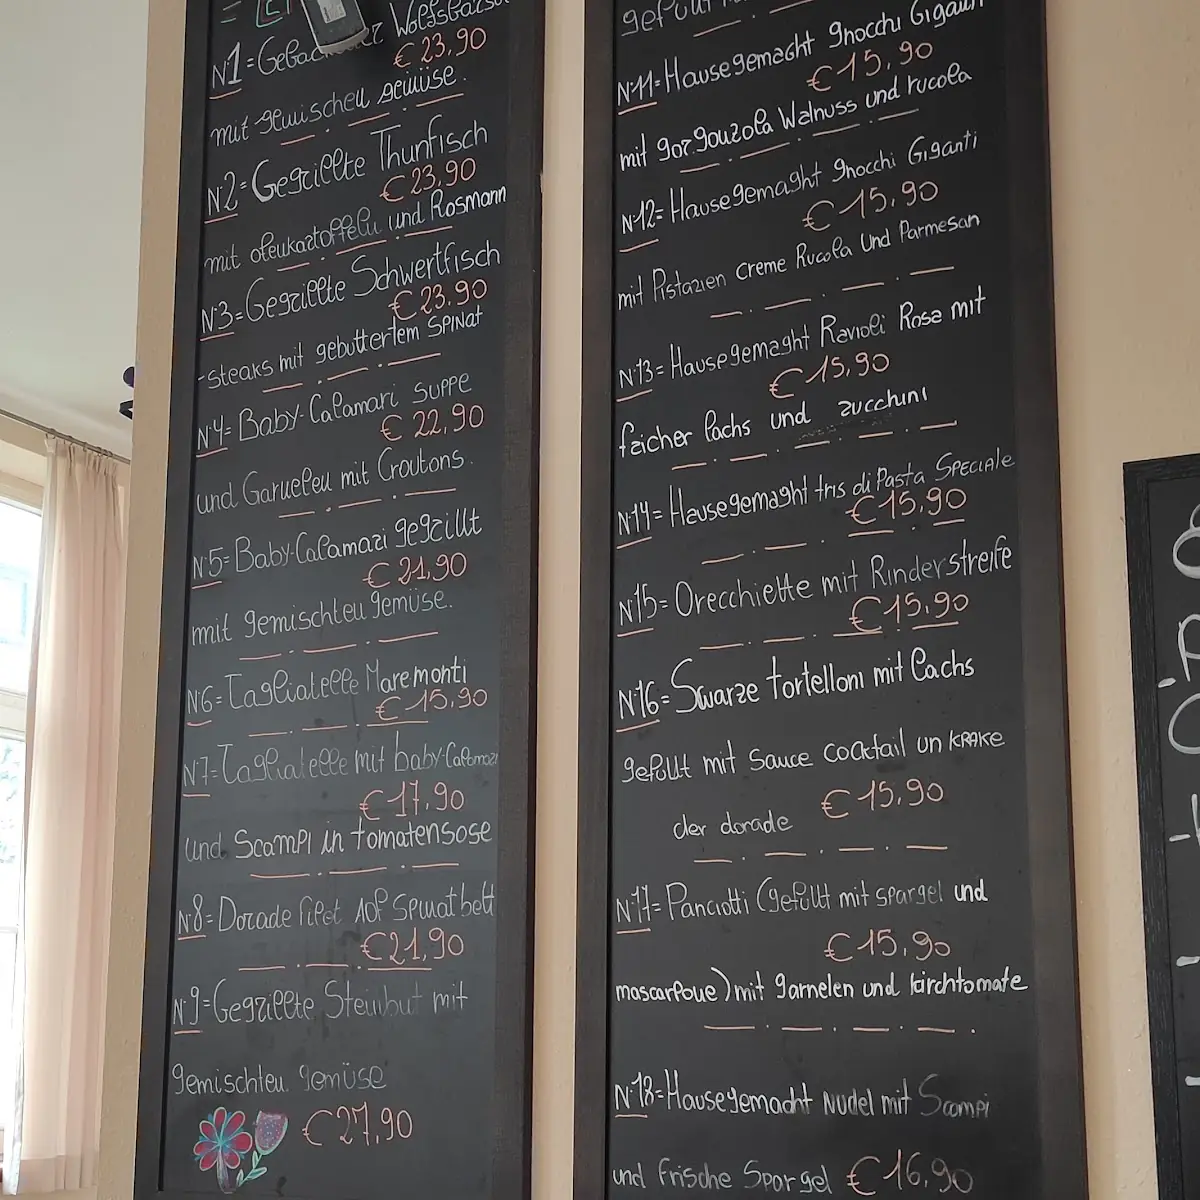 N:1=Gebackener Wolfsbarsch
€ 23,90
mit gemischeu gemüse.
N:2=Gegrillte Thunfisch
€ 23,90
mit ofeukartoffelu und Rosmarin
N:3=Gegrillte Schwertfisch
€ 23.90
-steaks mit gebuttertem SPINat
N:4=Baby-Calamari suppe
€ 22,90
und Garueleu mit Croutons.
N:5=Baby-Calamari gegrillt
€ 21,90
mit gemischteu gemüse.
N:6=Tagliatelle Maremonti
€ 15,90
N:7=Tagliatelle mit baby-Calamari
€ 17,90
und Scampi in tomatensose
N:8=Dorade filet auf spinatbett
€21,90
N:9=Gegrillte Steinbut mit
gemischteu gemüse
€27,90
gefüllt
N:11=Hausegemacht gnocchi Giganti
€15,90
mit gorgouzola Walnuss und rucola
N:12=Hausegemaght gnocchi Giganti
€15,90
mit Pistazien creme Rucola Und Parmesan
N:13=Hausegemaght Ravioli Rosa mit
€15,90
fricher lachs und zucchini
N:14=Hausegemaght tris di Pasta SPECIALE
€15,90
N:15=Orecchiette mit Rinderstreife
€15,90
N:16=Swarze tortelloni mit lachs
gefüllt mit sauce cocktail un KRAKE
€15,90
der dorade
N:17=Panciotti (gefüllt mit spargel und
€15,90
mascarpoue) mit garnelen und kirchtomate
N:18=Hausegemacht Nudel mit Scampi
und frische Spargel €16,90